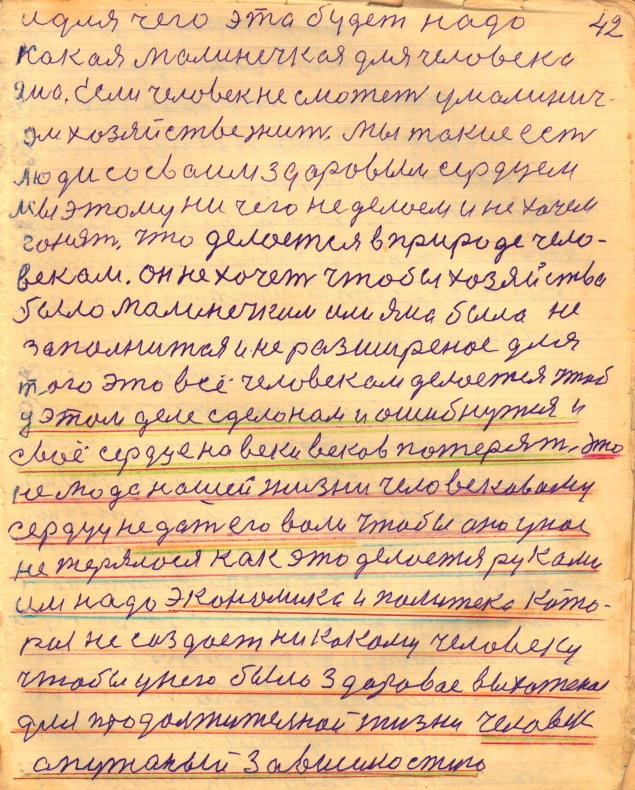 и для чего эта будет надо 42
какая малинечкая для человека
яма. Если человек не сможет у малинич-
ом хозяйстве жит. Мы такие ест
люди со сваим здоровым сердцем
мы этому ни чего не делоем и не хочем
гонят. Что делоется в природе чело-
векам. Он не хочет чтобы хозяйства
было малинечким или яма была не
заполнится и не разширеное для
того это всё человекам делоется чтоб
у этом деле сделонам и ошибнужся и
своё сердце на веки веков потерят. Это
не мода нашей жизни человековаму
сердцу не дат его воли чтобы оно у нас
не терялося как это делоется руками
им надо экономика и политека като-
рая не создает ни какому человеку
чтобы у него было здоровае
для продолжителной жизни человек
опутаный завшиностию